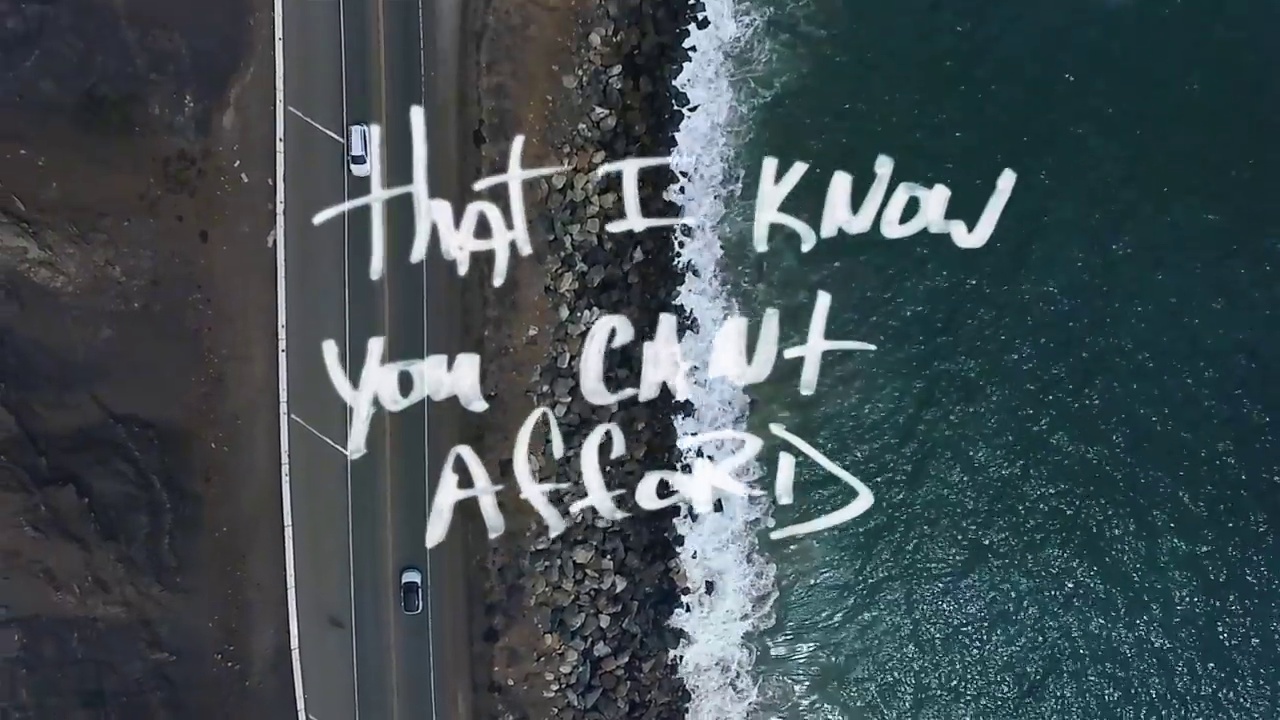 that I KNOW
you CANt
AffoRD